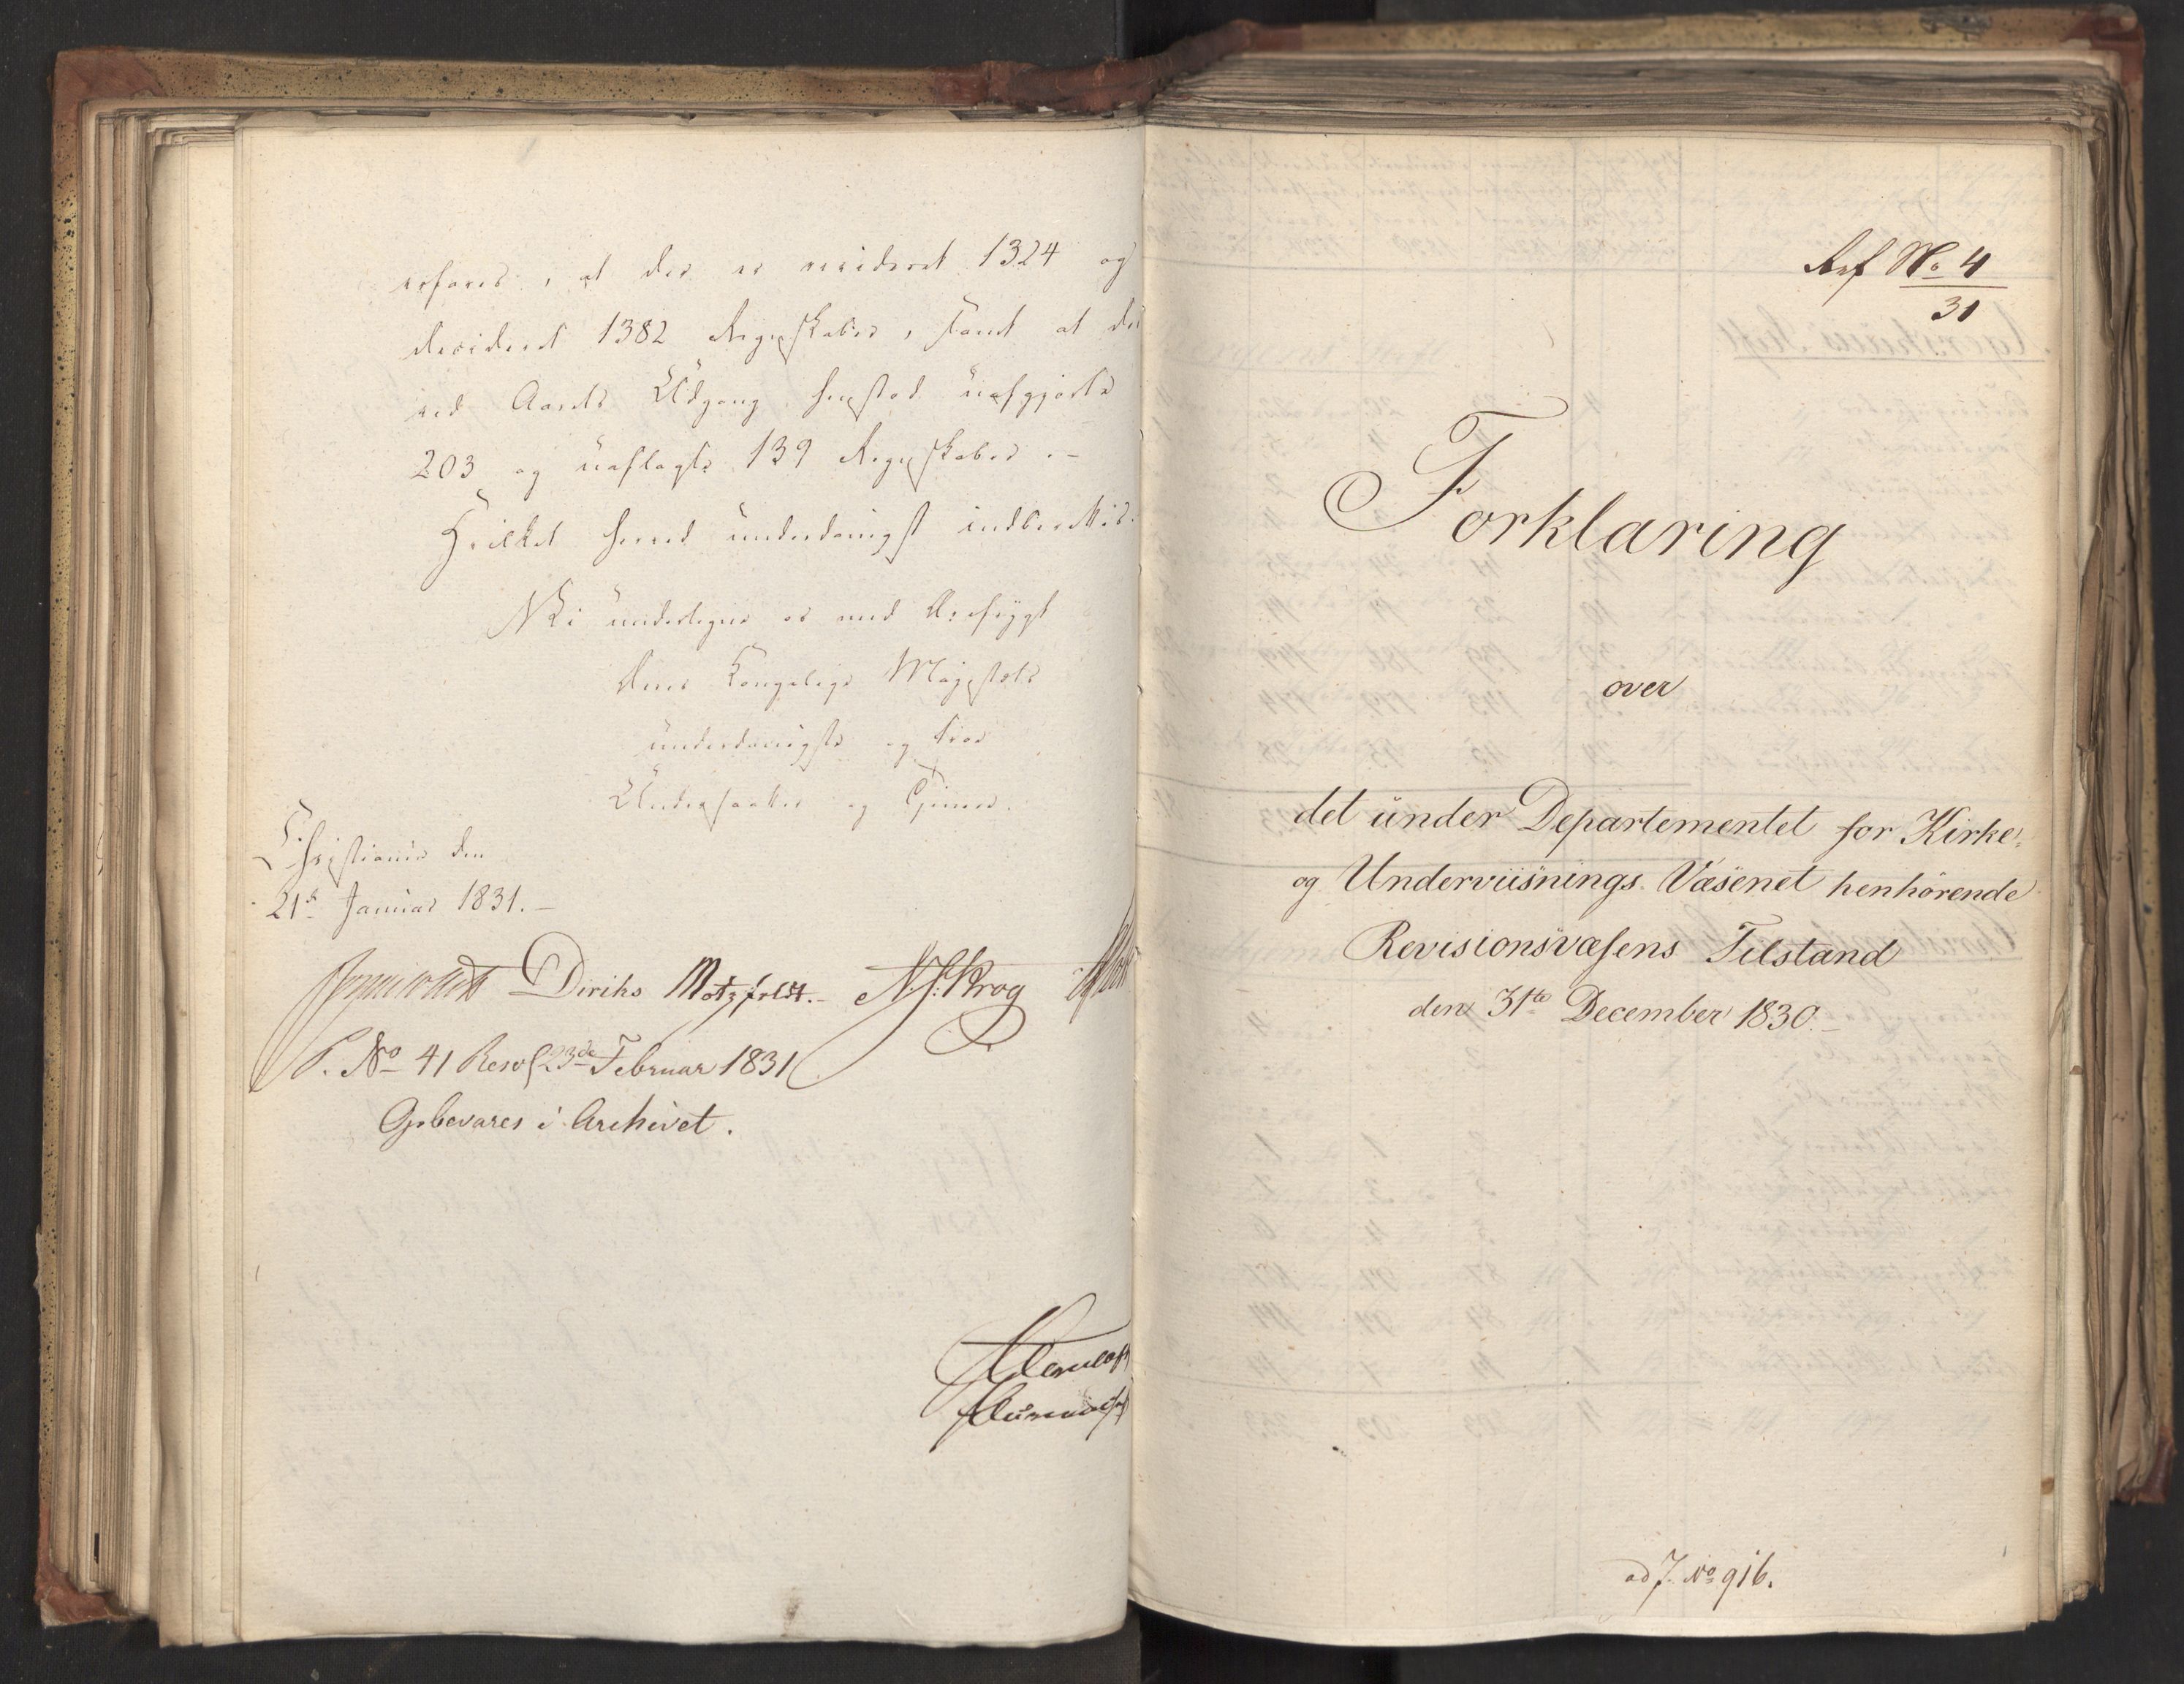 erfares, at der er revideret 1324 og
decideret 1382 Regnskaber, samt at der
ved Aarets Udgang henstod uafgjorte
203 og uaflagte 139 Regnskaber.-
Hvilket herved underdanigst indberettes.
Vi undertegne os med Ærefrygt
Deres Kongelige Majestæts
underdanigste og troe
Undersaatter og Tjenere.
Christiania den
21de Januar 1831.-
Diriks Motzfeldt.- N. J. Krog
P. No 41 Resol 23de Februar 1831
Opbevares i Archivet.
Ref No 4
31
Forklaring
over
det under Departementet for Kirke-
og Underviisnings-Væsenet henhörende
Revisionsvæsens Tilstand
den 31te December 1830.-
ad J. No 916.